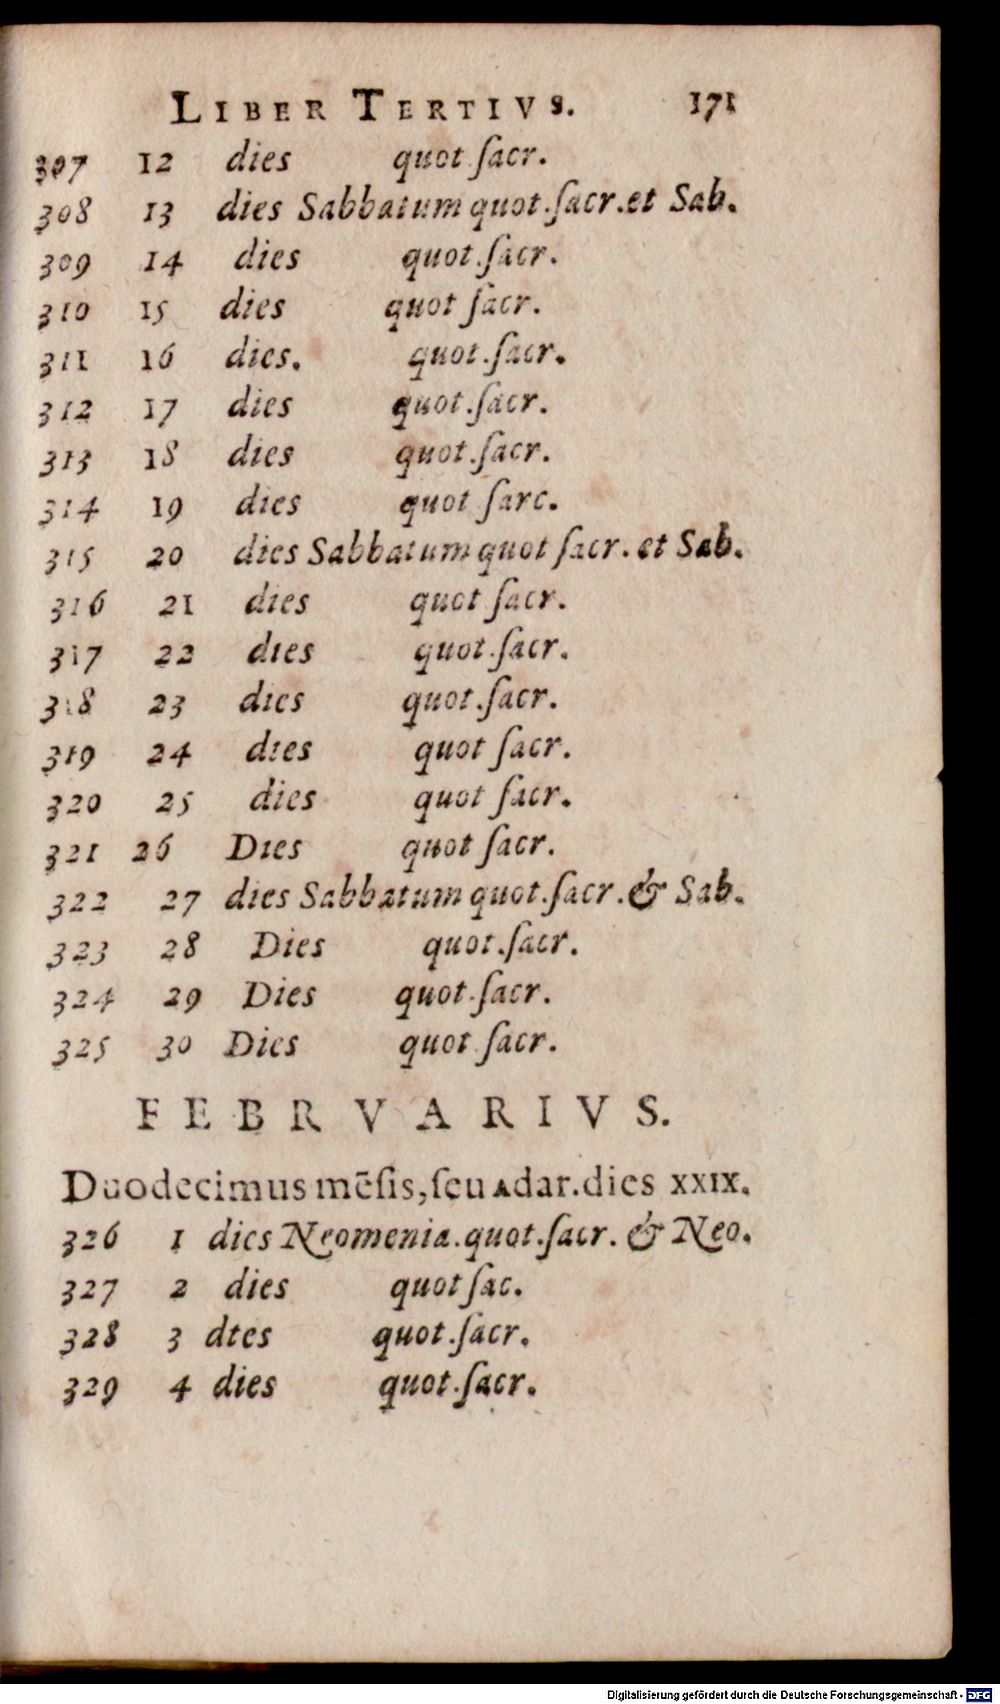 LIBER TERTIVS. 171
307 12 dies quot ſacr.
308 13 dies Sabbatum quot.ſacr.et Sab.
309 14 dies quot.ſacr.
310 15 dies quot ſacr.
311 16 dies. quot.ſacr.
312 17 dies quot.ſacr.
313 18 dies quot.ſacr.
314 19 dies quot ſarc.
315 20 dies Sabbatum quot ſacr. et Sab.
316 21 dies quot ſacr.
317 22 dies quot.ſacr.
318 23 dies quot.ſacr.
319 24 dies quot ſacr.
320 25 dies quot ſacr.
321 26 Dies quot ſacr.
322 27 dies Sabbatum quot.ſacr.& Sab.
323 28 Dies quot.ſacr.
324 29 Dies quot.ſacr.
325 30 Dies quot ſacr.
FEBRVARIVS.
Duodecimus mēſis,ſeu Adar.dies XXIX.
326 1 dies Neomenia.quot.ſacr. & Neo.
327 2 dies quot ſac.
328 3 dtes quot.ſacr.
329 4 dies quot.ſacr.
Digitalisierung gefördert durch die Deutsche Forschungsgemeinschaft - DFG